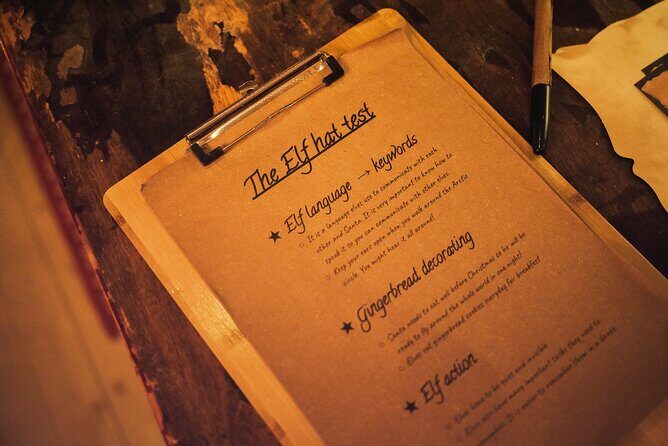 The Elf hat test
★ Elf language → keywords
○ It is a language elves use to communicate with each
other and Santa. It is very important to know how to
speak it so you can communicate with other elves.
○ Keep your ears open when you walk around the Arctic
circle. You might hear it all around!
★ Gingerbread decorating
○ Santa needs to eat well before Christmas so he will be
ready to fly around the whole world in one night!
○ Elves eat gingerbread cookies everyday for breakfast
★ Elf action
○ Elves have to be quiet and invisible
○ Elves also have many important tasks they need to
remember. It is easier to remember them in a dance.